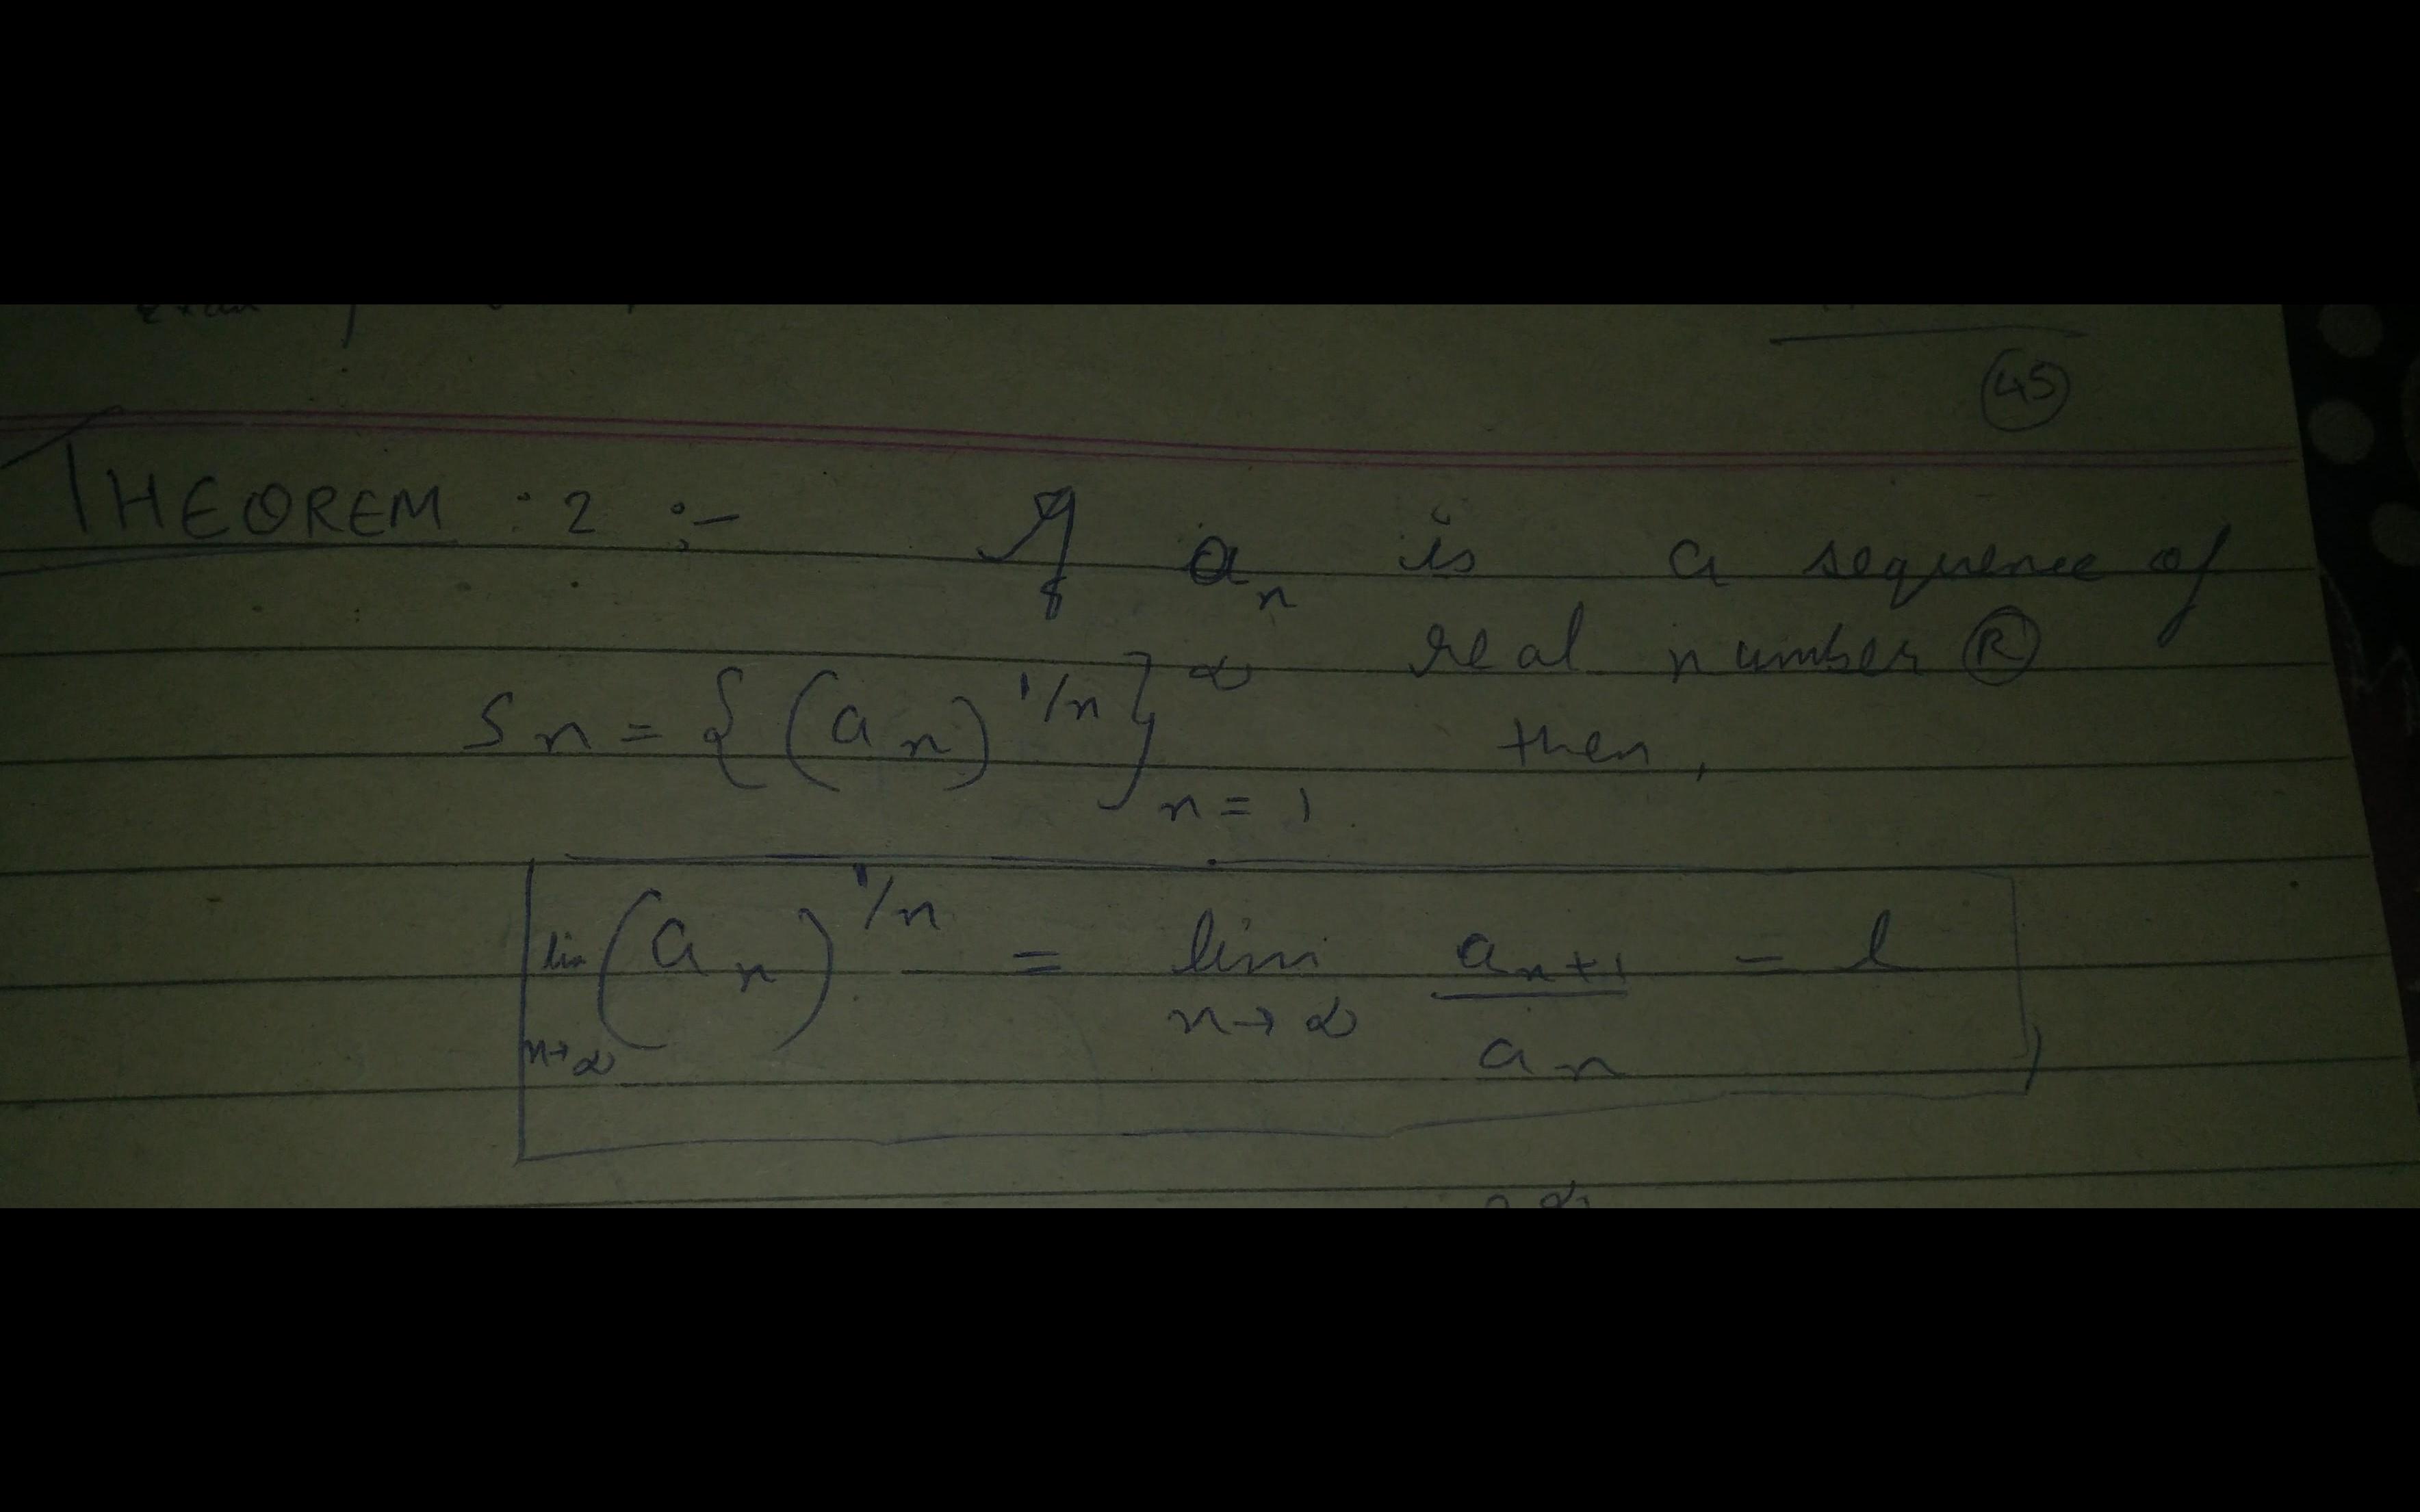 45
THEOREM : 2 :- If aₙ is a sequence of
real number ®
Sₙ = {(aₙ)^{1/n}}_{n=1}^{∞} then,
lim_{n→∞} (aₙ)^{1/n} = lim_{n→∞} aₙ₊₁/aₙ = l